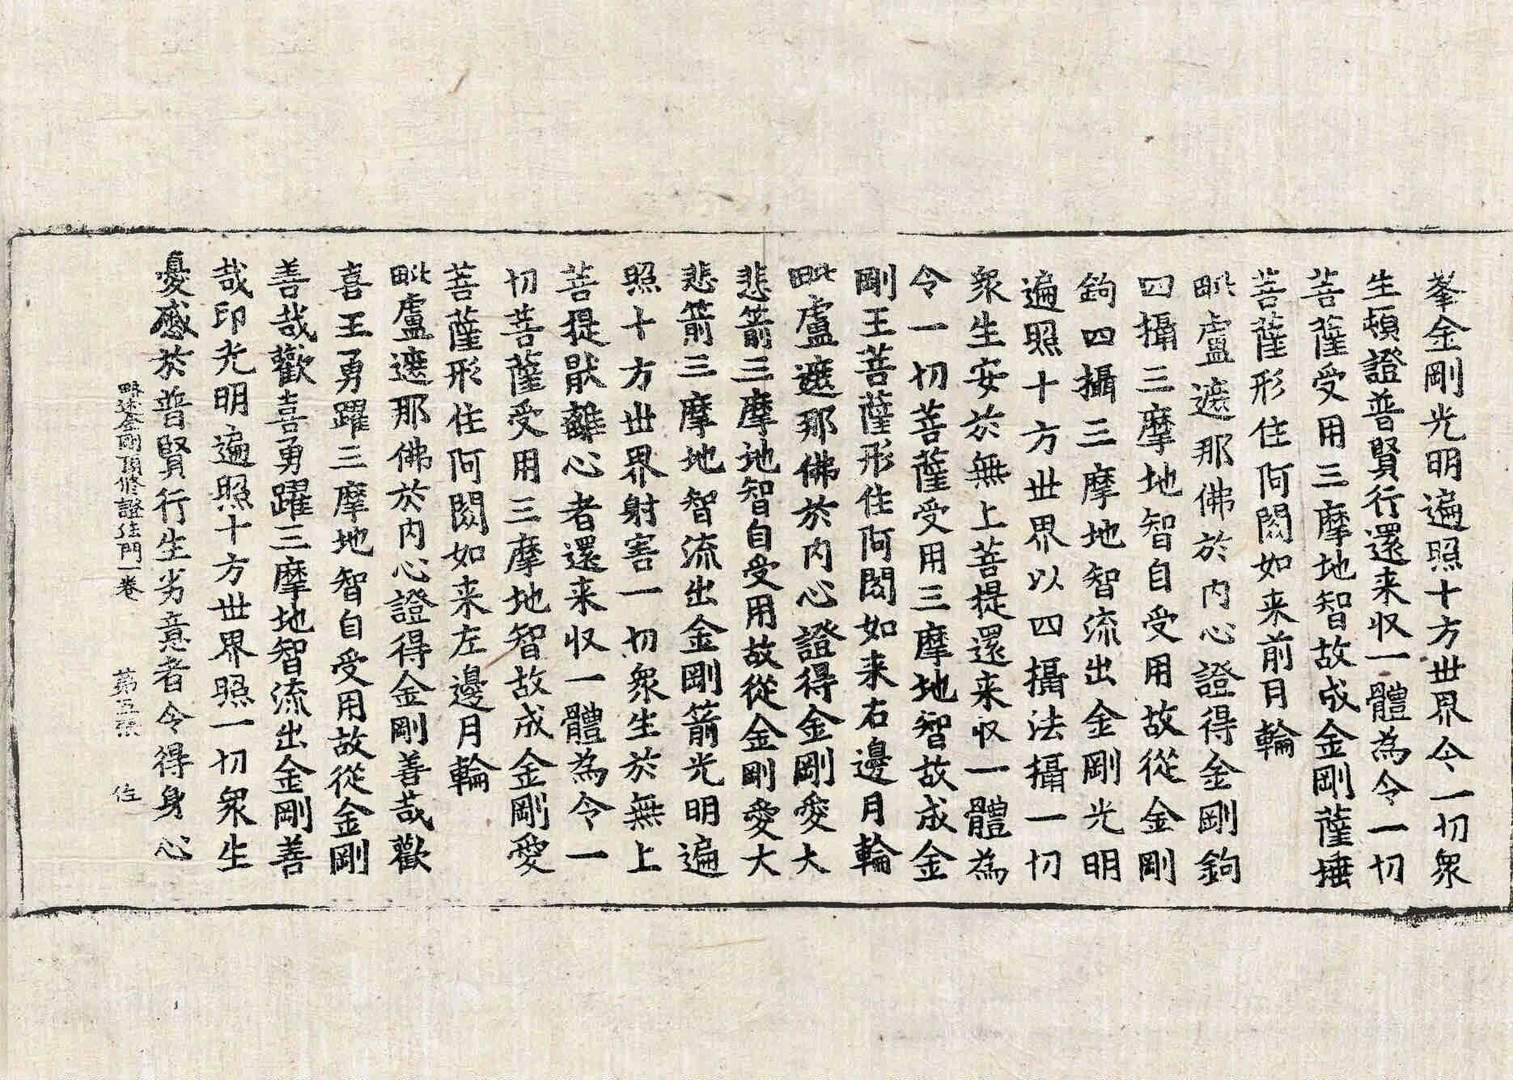 峯金剛光明遍照十方世界令一切衆
生頓證普賢行還来収一體為令一切
菩薩受用三摩地智故成金剛薩埵
菩薩形住阿閦如来前月輪
毗盧遮那佛於内心證得金剛鉤
四攝三摩地智自受用故從金剛
鉤四攝三摩地智流出金剛光明
遍照十方世界以四攝法攝一切
衆生安於無上菩提還来収一體為
令一切菩薩受用三摩地智故成金
剛王菩薩形住阿閦如来右邊月輪
毗盧遮那佛於内心證得金剛愛大
悲箭三摩地智自受用故從金剛愛大
悲箭三摩地智流出金剛箭光明遍
照十方世界射害一切衆生於無上
菩提猒離心者還来収一體為令一
切菩薩受用三摩地智故成金剛愛
菩薩形住阿閦如来左邊月輪
毗盧遮那佛於内心證得金剛善哉歡
喜王勇躍三摩地智自受用故從金剛
善哉歡喜勇躍三摩地智流出金剛善
哉印光明遍照十方世界照一切衆生
憂慼於普賢行生劣意者令得身心
略述金剛頂修證法門一卷 第五張 位